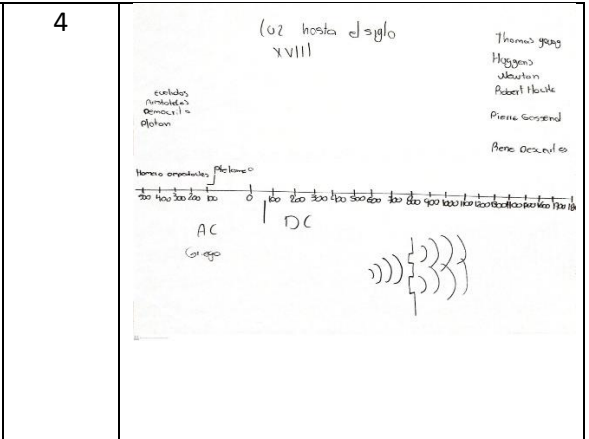 4
Luz hasta el siglo
XVIII
Thomas young
Huggens
Newton
Robert Hooke
Pierre Gassend
Rene Descartes
euclides
Aristoteles
Democrito
Platon
Homero
Ptolomeo
500 400 300 200 100 0 100 200 300 400 500 600 700 800 900 1000 1100 1200
AC
DC
Griego